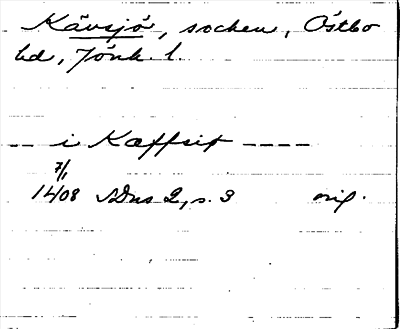 Kävsjö, socken, Östbo
hd, Jönk. l.
-- i Kæffsit ----
7/1
1408 SDns 2, s. 3 orig.